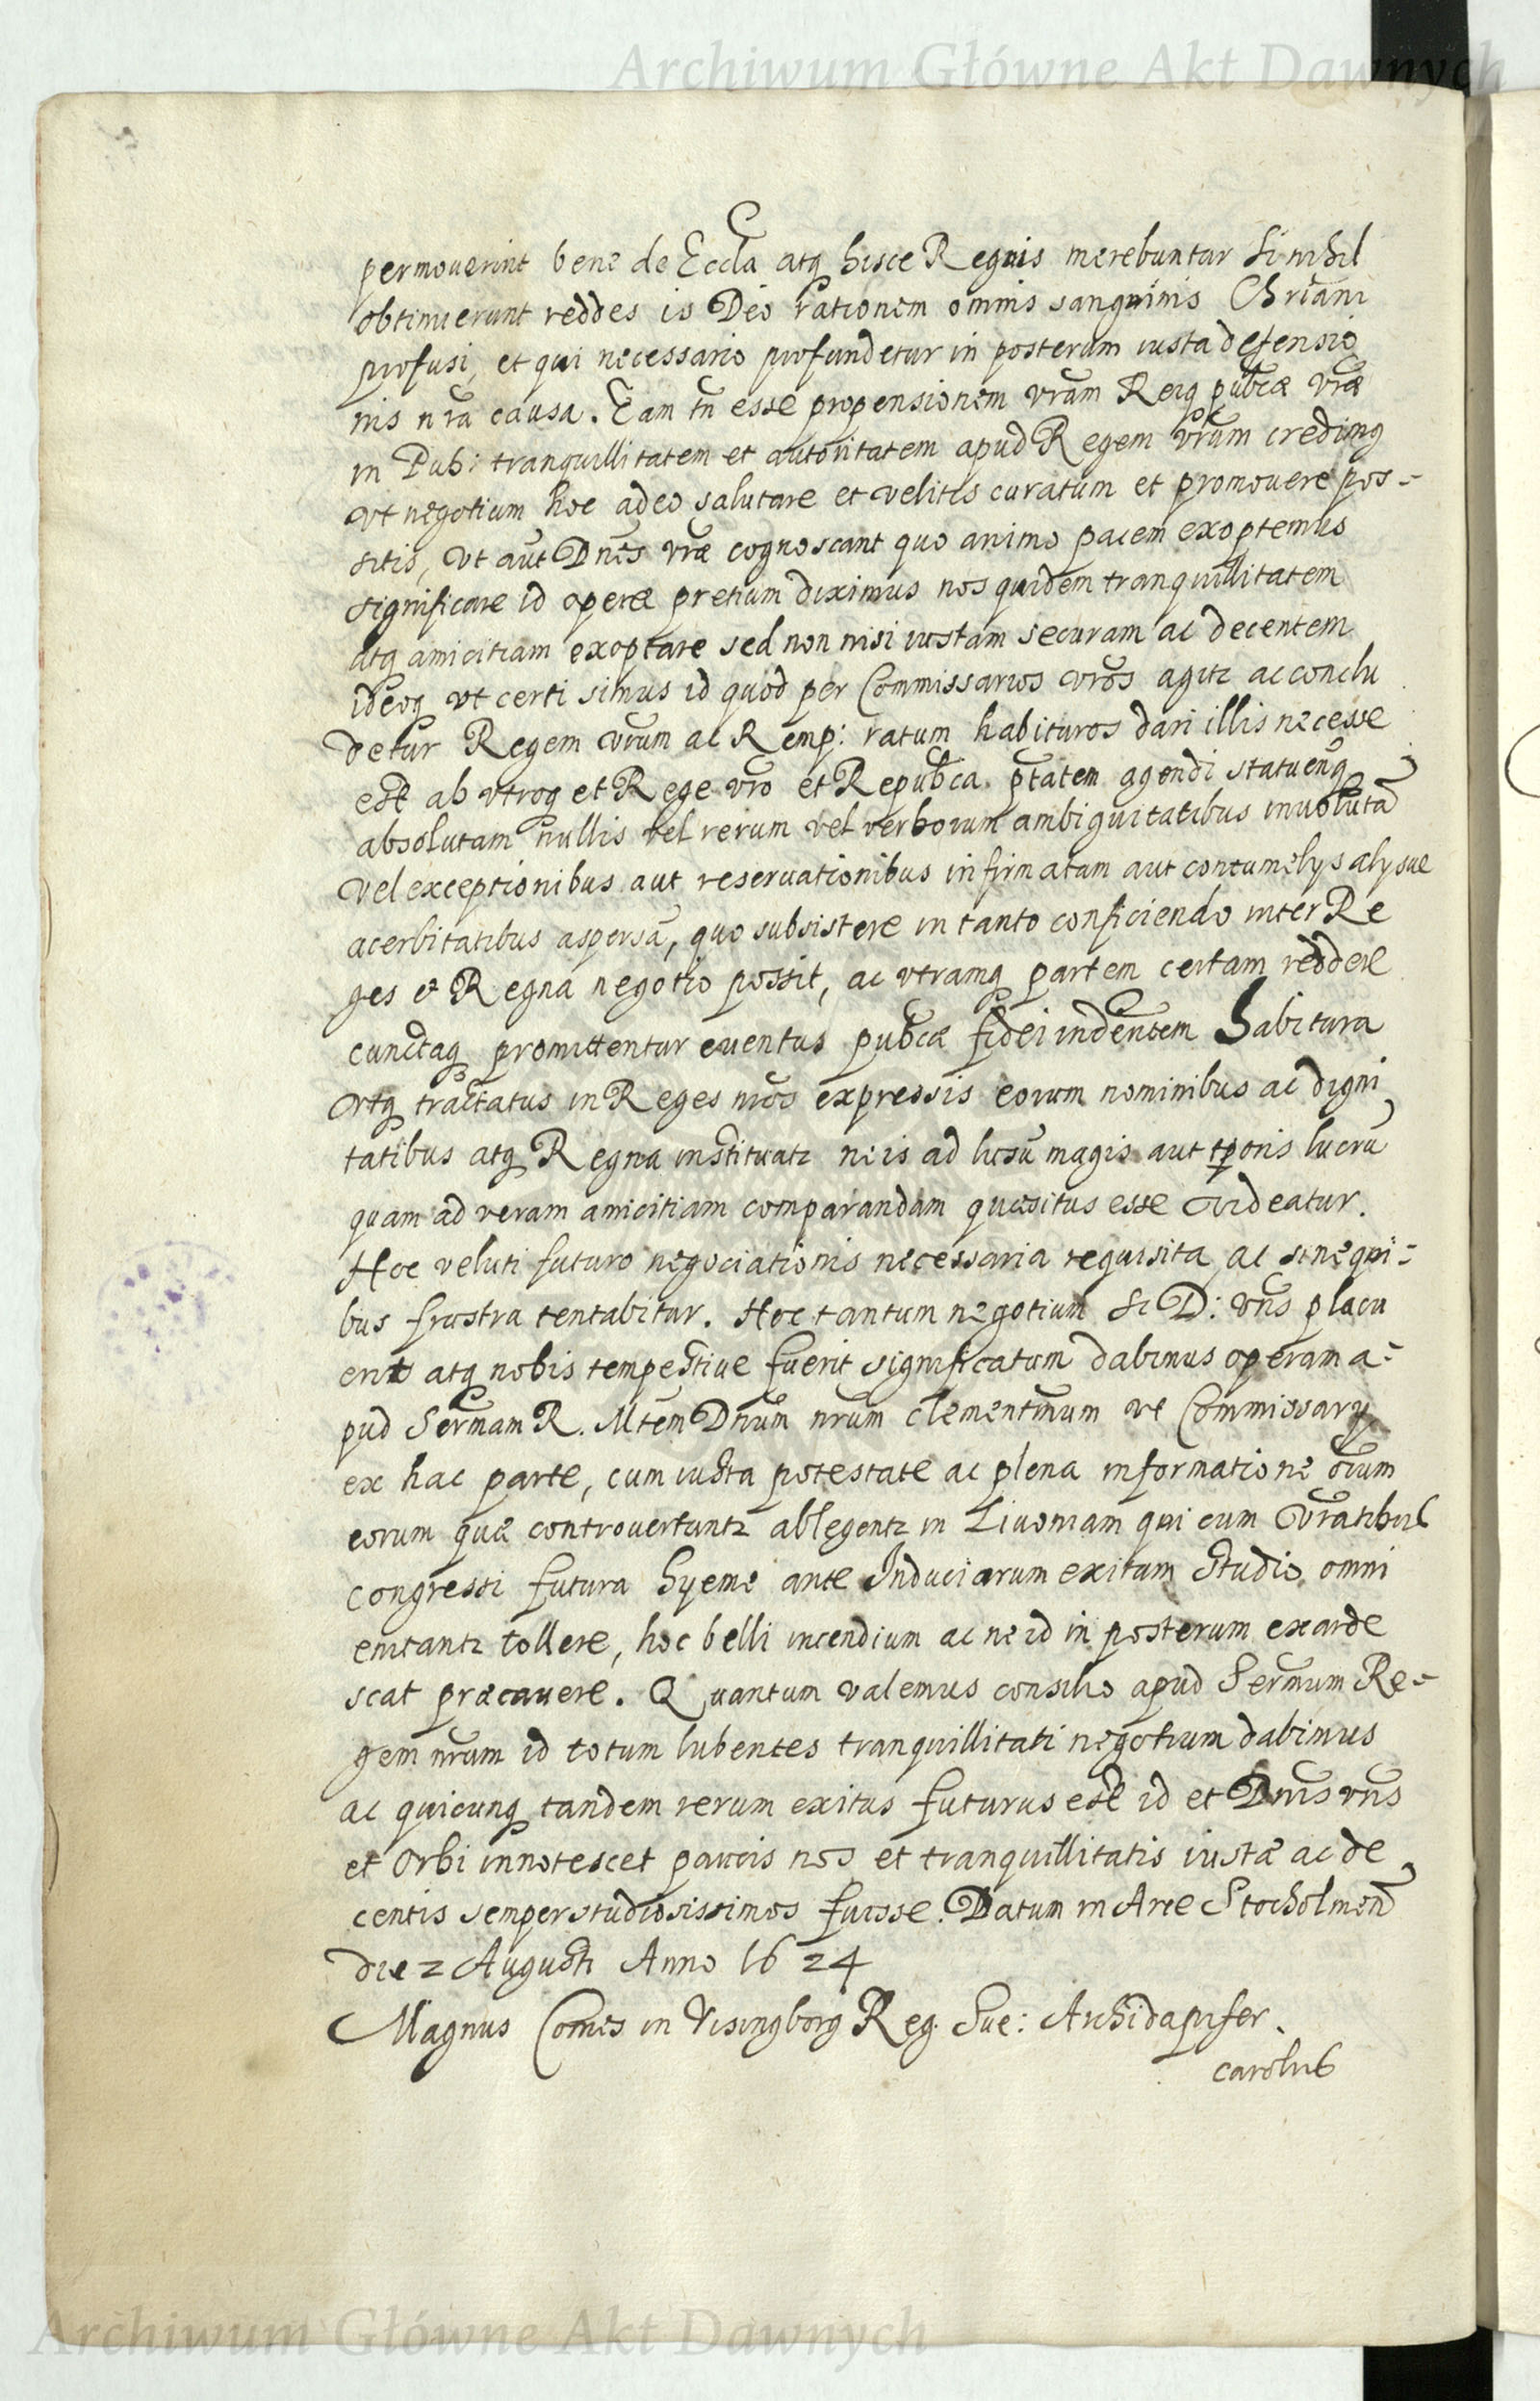 Archiwum Główne Akt Dawnych
permouerint bene de Eccla atq hisce Regnis merebuntur si nihil
obtinuerunt reddes is Deo rationem omnis sanguinis Chriani
profusi, et qui necessario profundetur in posterum iusta defensio
nis nrã causa. Eam tñ esse propensionem vrãm Reiq pubcæ vræ
in Pub: tranquillitatem et autoritatem apud Regem vrũm credimq
vt negotium hoc adeo salutare et velitis curatum et promouere pos-
sitis, vt aut Dnẽs vræ cognoscant quo animo pacem exoptemus
significare id operæ pretium diximus nos quidem tranquillitatem
atq amicitiam exoptare sed non nisi iustam securam ac decentem
ideoq vt certi simus id quod per Commissarios vrõs agitr ac conclu
detur Regem vrũm ac Remp: ratum habituros dari illis necesse
est ab vtroq et Rege vrõ et Repubca ptãtem agendi statuenq
absolutam nullis vel rerum vel verborum ambiguitatibus inuolutã
vel exceptionibus aut reseruationibus infirmatam aut contumelys alysue
acerbitatibus aspersã, quo subsistere in tanto conficiendo inter Re
ges & Regna negotio possit, ac vtramq partem certam reddere
cunctaq promittentur euentus pubcæ fidei indentem habitura
Ortq tractatus in Reges nrõs expressis eorum nominibus ac digni
tatibus atq Regna instituatr ne is ad lusũ magis aut tporis lucrũ
quam ad veram amicitiam comparandam quæsitus esse videatur.
Hoc veluti futuro negociationis necessaria requisita, ac sine qui-
bus frustra tentabitur. Hoc tantum negotium si D: vris placu
erit atq nobis tempestiue fuerit significatum dabimus operam a-
pud Sermam R. Mtem Dnũm nrũm clementmum vt Commissary
ex hac parte, cum iusta potestate ac plena informatione oĩum
eorum quæ controvertuntr ablegentr in Livoniam qui cum Vratibus
congressi futura hyeme ante Induciarum exitum studio omni
enitantr tollere, hoc belli incendium ac ne id in posterum exarde
scat præcauere. Quantum valemus consilio apud Sermum Re-
gem nrũm id totum lubentes tranquillitati negotium dabimus
ac quicunq tandem rerum exitus futurus est id et Dnis vris
et Orbi innotescet paucis nos et tranquillitatis iustæ ac de
centis semper studiosissimos fuisse. Datum in Arce Stocholmen
die 2 Augusti Anno 1624
Magnus Comes in Visingborg Reg. Sue: Archidapifer.
Carolus
Archiwum Główne Akt Dawnych